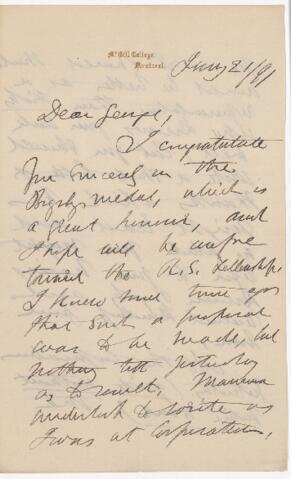 McGill College,
Montreal.
Jany 21/91
Dear George,
I congratulate
you sincerely on the
Bigsby medal, which is
a great honour, and
I hope will be
toward the R.S. Fellowship.
I knew some time ago
that such a proposal
was to be made, but
nothing till yesterday
as to result. Mamma
undertook to write as
I was at Corporation,